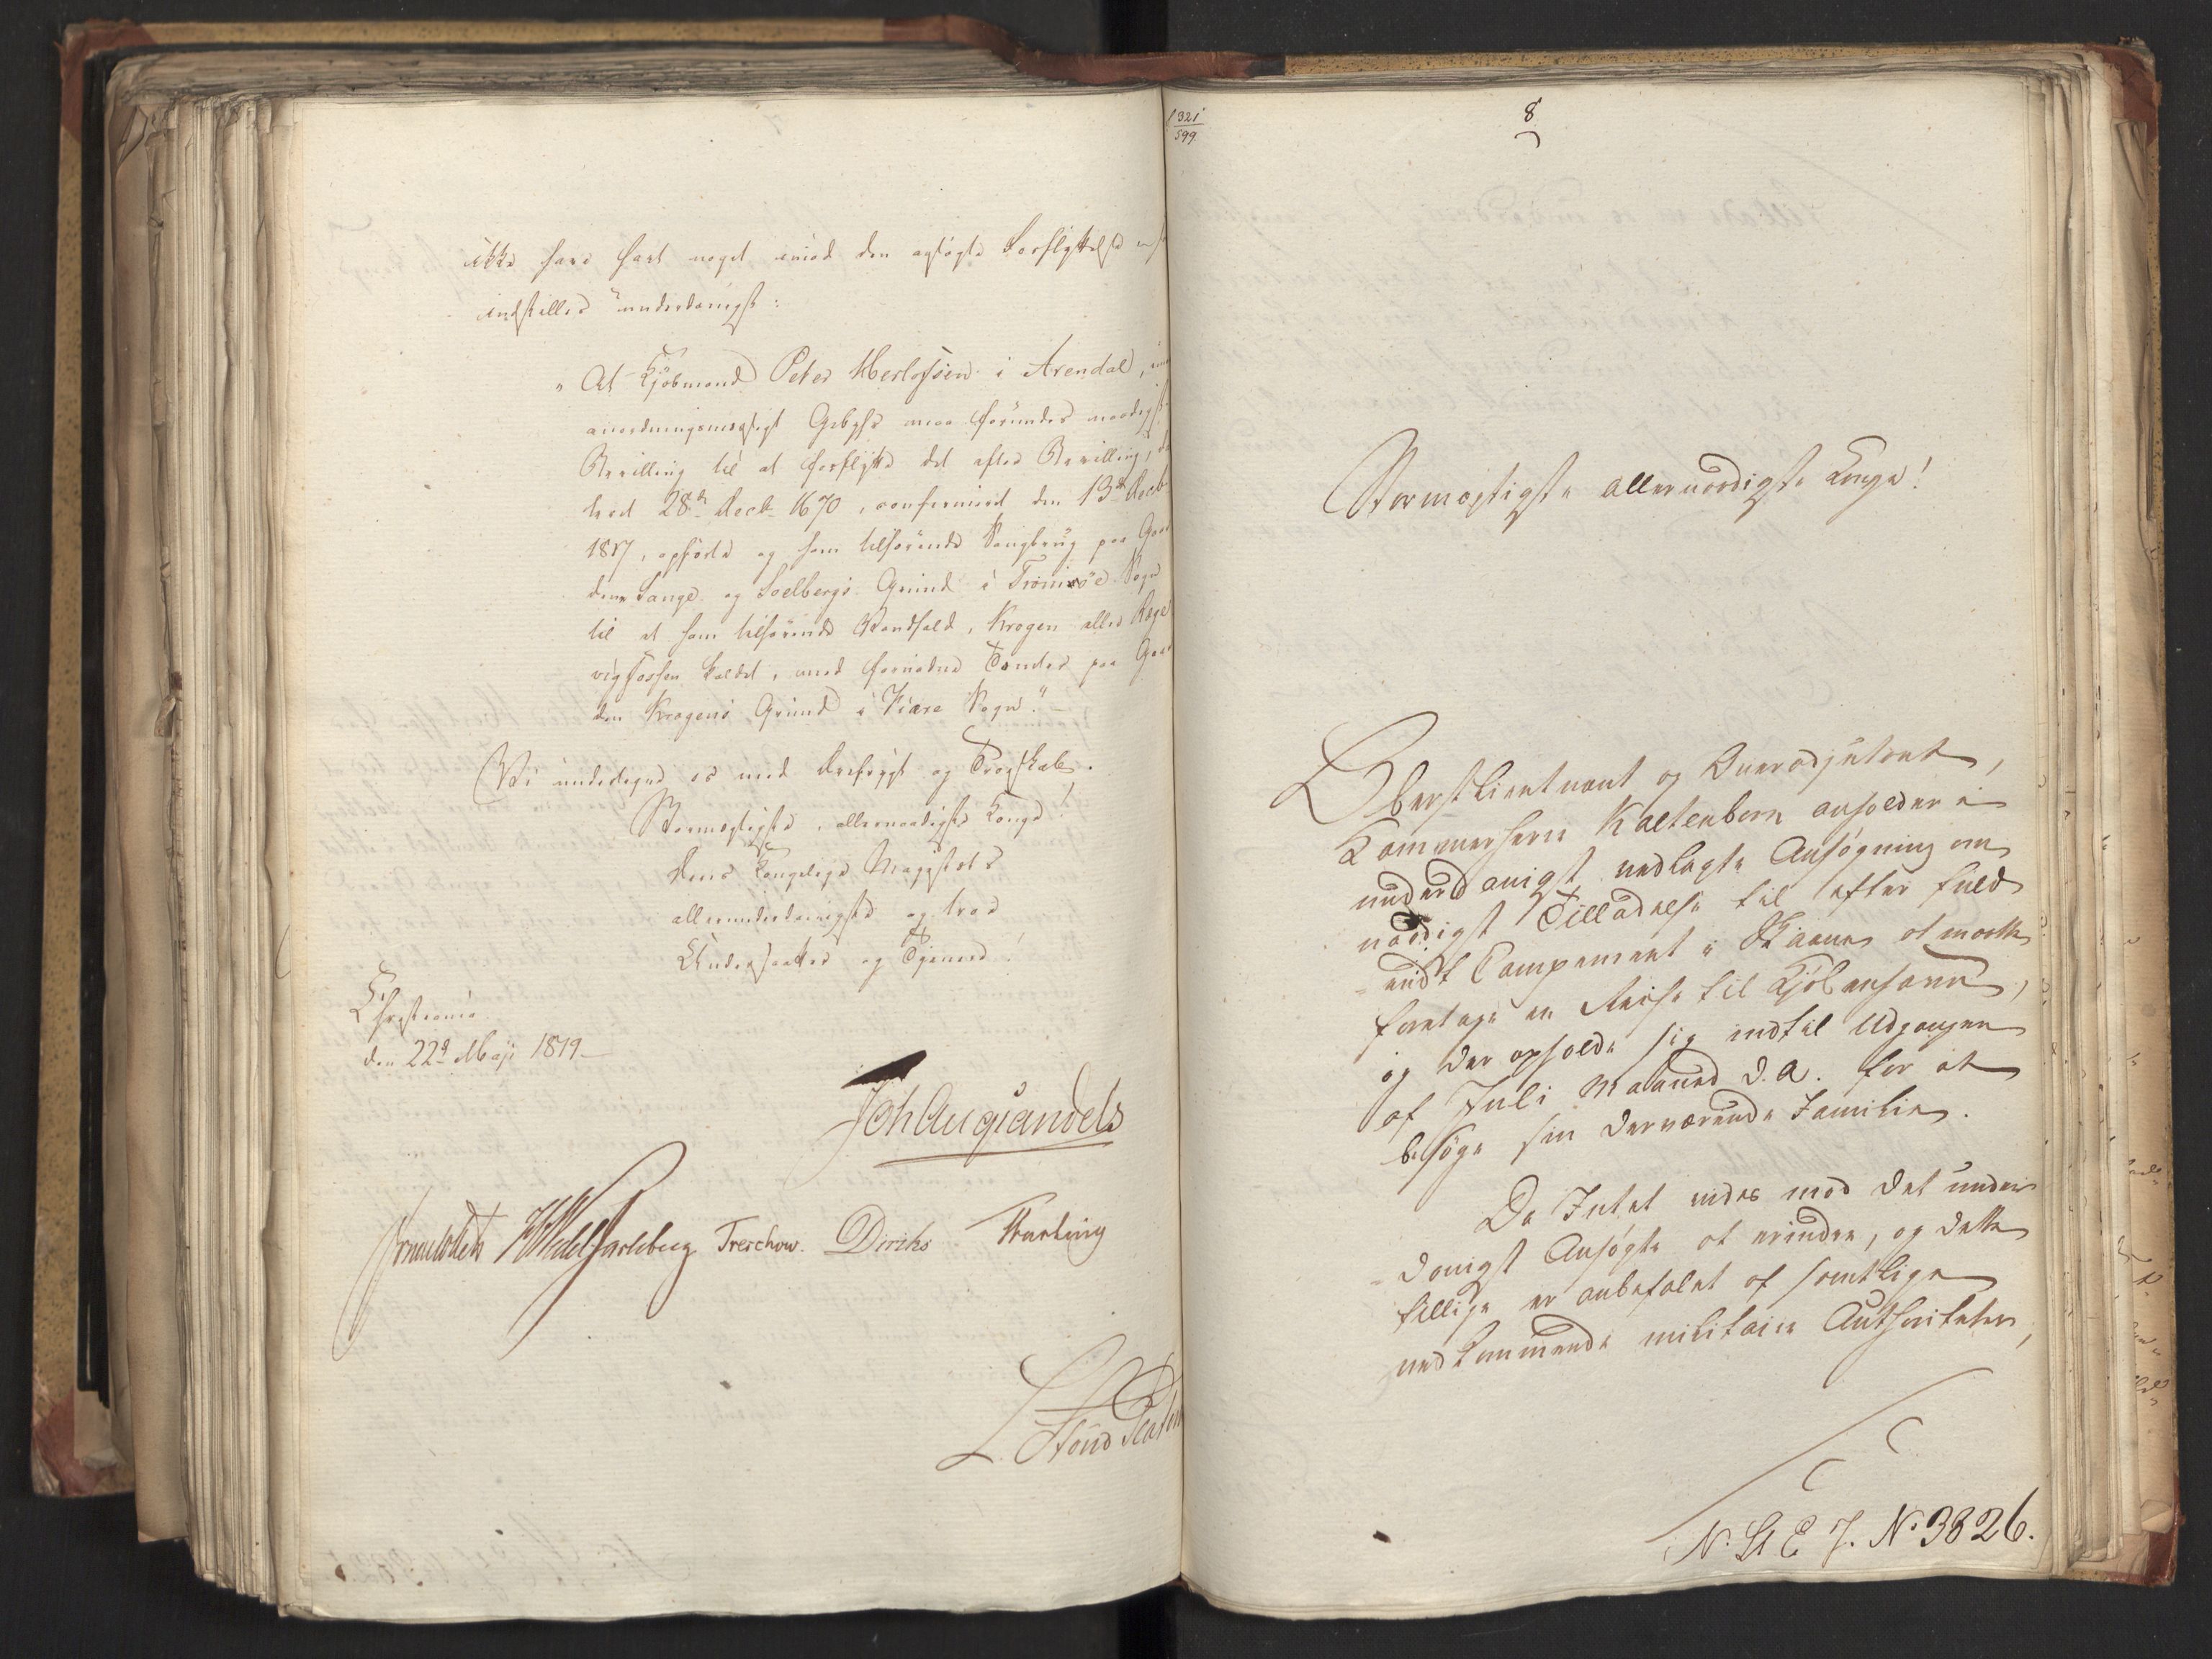 ikke have havt noget imod den ansøgte Forflyttelse
indstilles underdanigst:
"At Kjøbmand Peter Herlofsen i Arendal,
anordningsmæssigt Gebyhr maa forundes naadigst
Bevilling til at forflytte det efter Bevilling,
28de Decbr 1670, confirmeret den 13de Decbr
1817, opførte og ham tilhørende Saugbrug paa Gaar
dene Lange og Soelbergs Grund i Tromøe Sogn
til et ham tilhørende Vandfald, Krogen eller Røge
vigfossen kaldet, med fornødne Tomter paa Gaar
den Krogens Grund i Hisøe Sogn." —
Vi undertegne os med Ærefrygt og Troskab.
Stormægtigste, allernaadigste Konge!
Deres Kongelige Majestæts
allerunderdanigste og troe
Undersaatter og Tjenere!
Christiania
den 22de Maji 1819.
Joh Aug Sandels
Sommerhielm HWedel Jarlsberg Treschow. Diriks Fasting
L. Stoud Platou
321
599
8
Stormægtigste allernaadigste Konge!
Oberstlieutnant og Overadjutant,
Kammerherre Kaltenborn anholder i
underdanigst nedlagte Ansøgning om
naadigst Tilladelse til efter fuld
-endt Campement i Skaane at maatte
foretage en Reise til Kjøbenhavn,
og der opholde sig indtil Udgangen
af Juli Maaned d. A. for at
besøge sin derværende Familie.
Da Intet vides mod det under
-danigst Ansøgte at erindre, og dette
tillige er anbefalet af samtlige
vedkommende militaire Authoriteter,
N. St. E. J. No 3826.